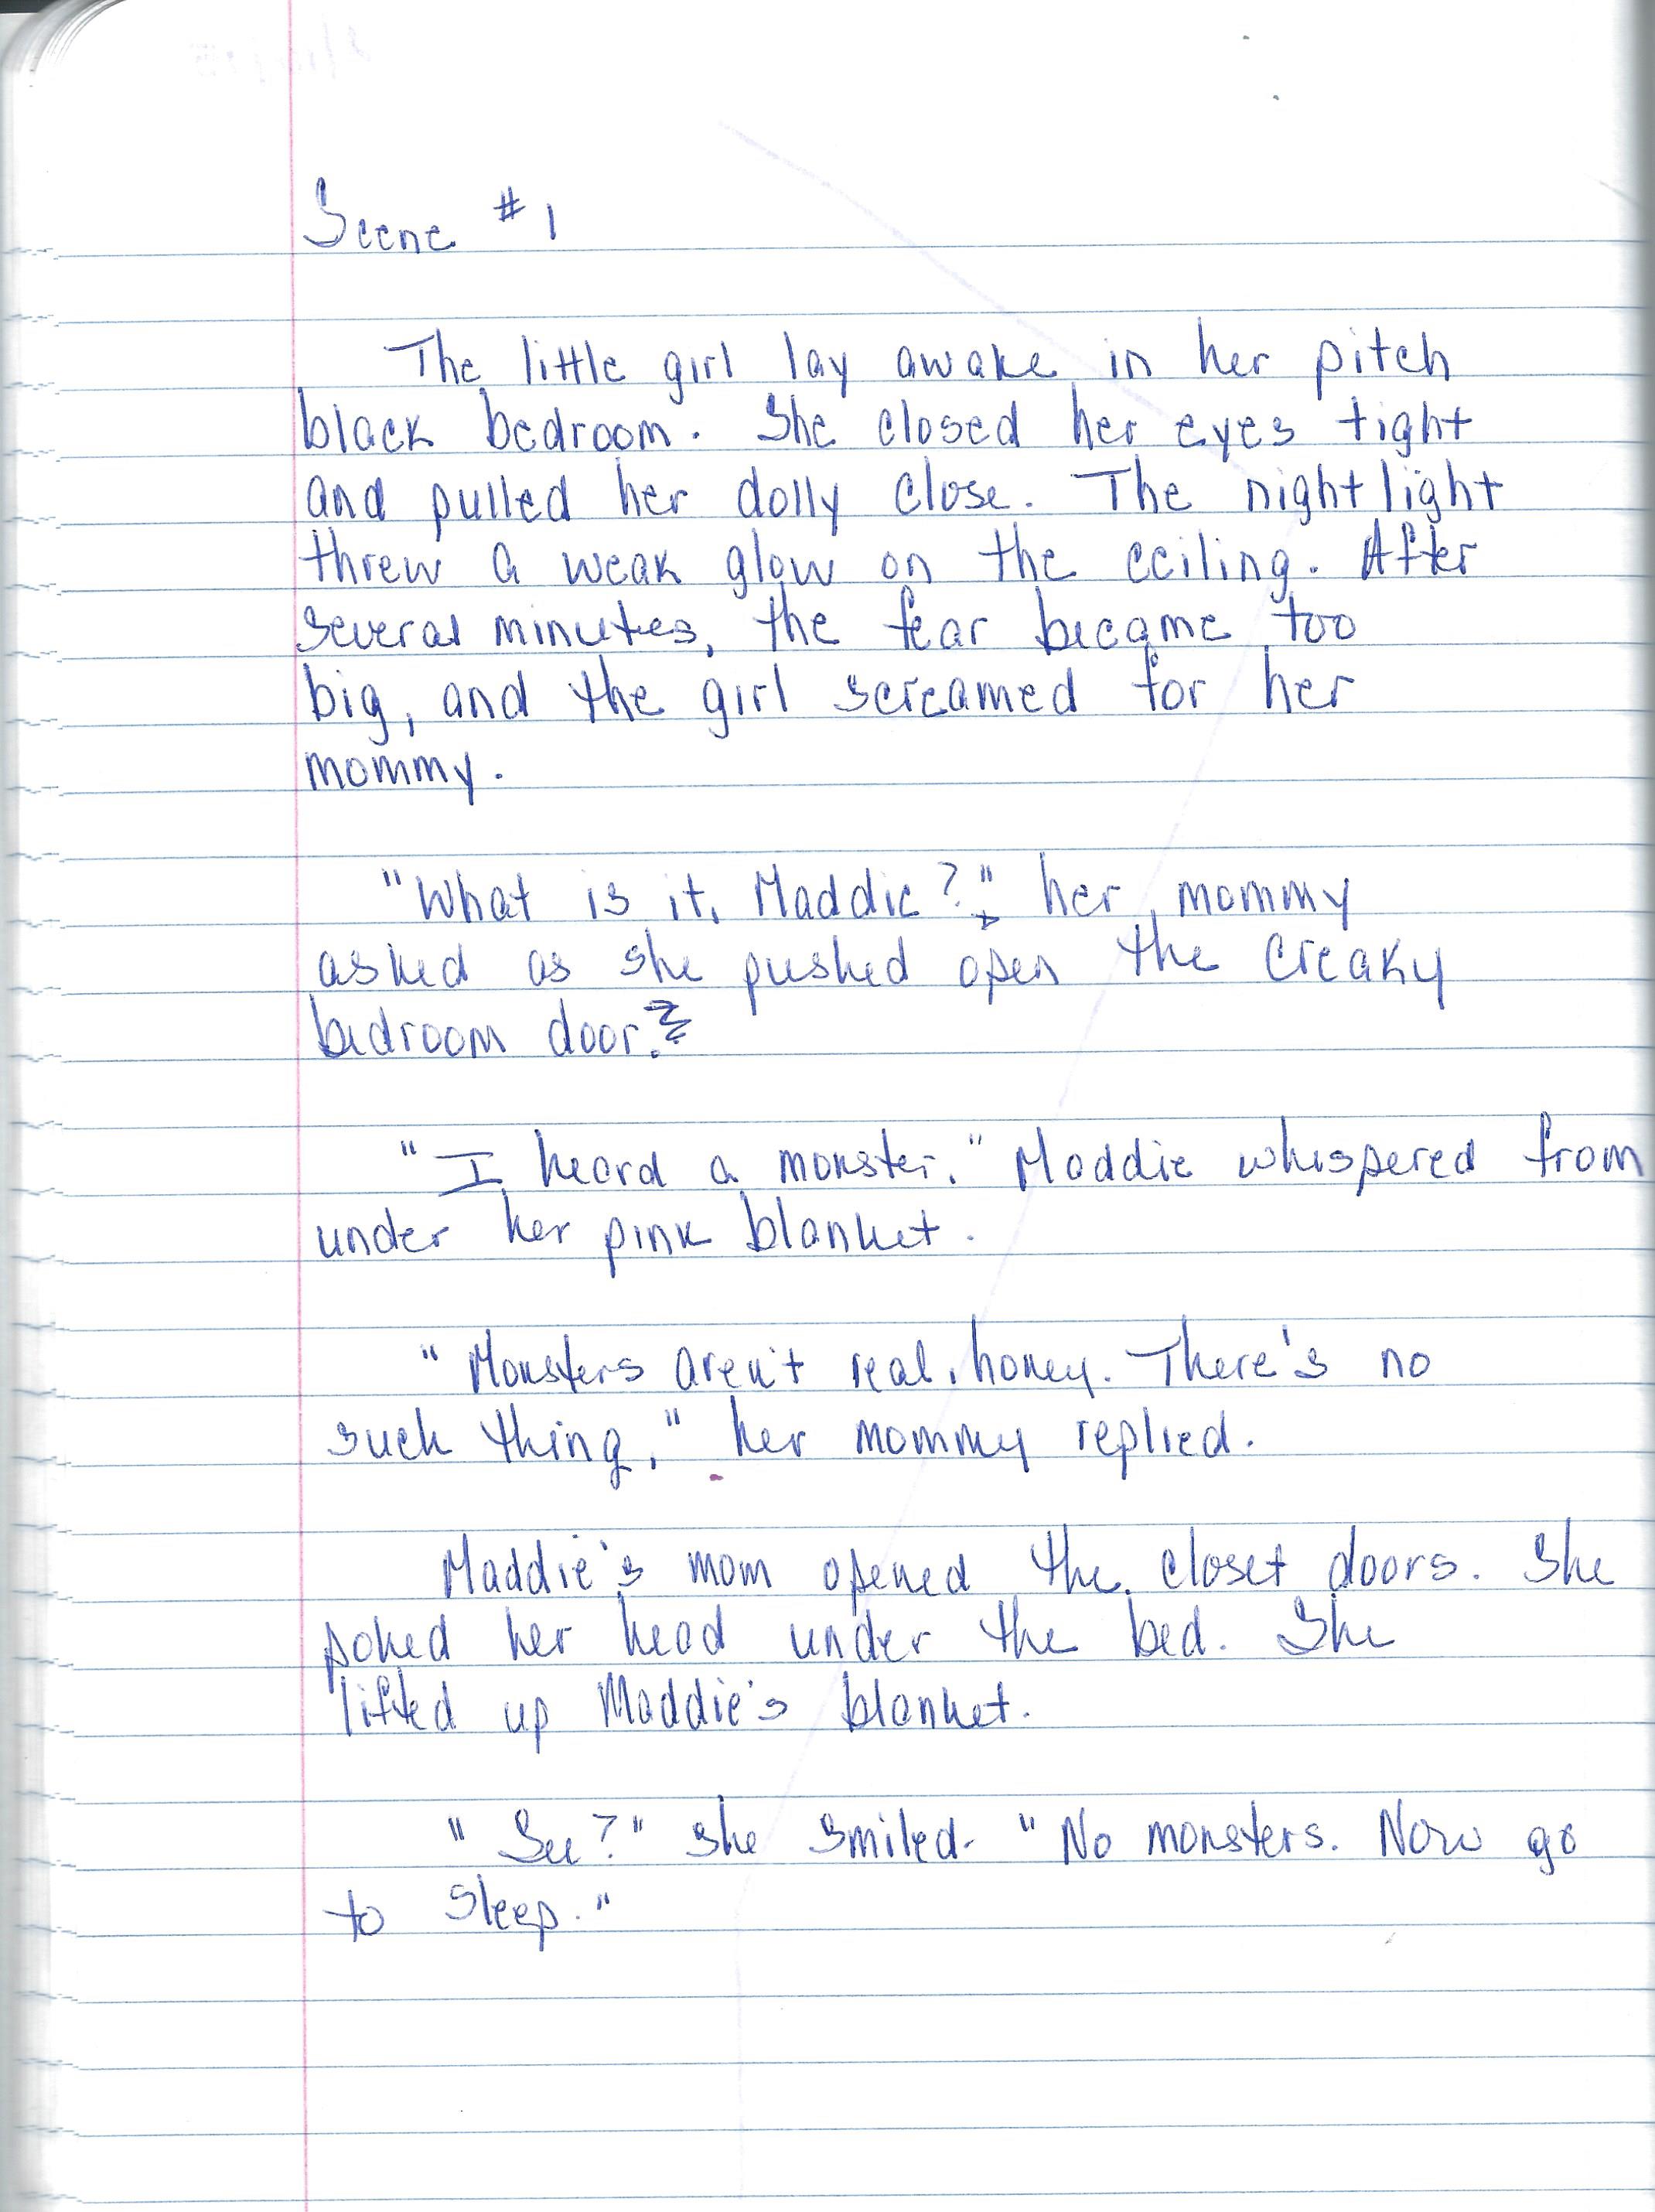 Scene #1
The little girl lay awake in her pitch
black bedroom. She closed her eyes tight
and pulled her dolly close. The nightlight
threw a weak glow on the ceiling. After
several minutes, the fear became too
big, and the girl screamed for her
mommy.
"What is it, Maddie?" her mommy
asked as she pushed open the creaky
bedroom door.
"I heard a monster," Maddie whispered from
under her pink blanket.
"Monsters aren't real, honey. There's no
such thing," her mommy replied.
Maddie's mom opened the closet doors. She
poked her head under the bed. She
lifted up Maddie's blanket.
"See?" she smiled. "No monsters. Now go
to sleep."